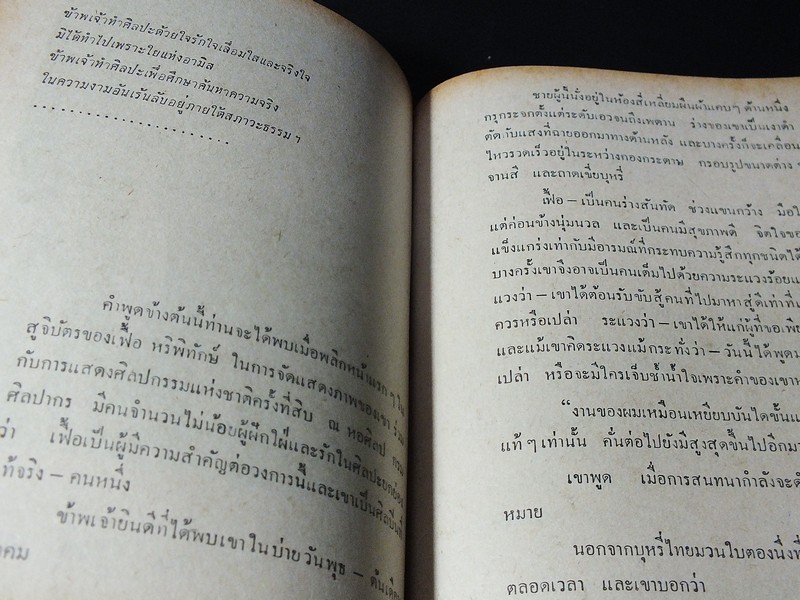 ข้าพเจ้าทำศิลปะด้วยใจรักใจเลื่อมใสและจริงใจ
มิได้ทำไปเพราะใยแห่งอามิส
ข้าพเจ้าทำศิลปะเพื่อศึกษาค้นหาความจริง
ในความงามอันเร้นลับอยู่ภายใต้สภาวะธรรม ฯ
คำพูดข้างต้นนี้ท่านจะได้พบเมื่อพลิกหน้าแรก ๆ ใน
สูจิบัตรของเฟื้อ หริพิทักษ์ ในการจัดแสดงภาพของเขา ร่วม
กับการแสดงศิลปกรรมแห่งชาติครั้งที่สิบ ณ หอศิลป กรม
ศิลปากร มีคนจำนวนไม่น้อยผู้ฝักใฝ่และรักในศิลปะยกย่อง
ว่า เฟื้อเป็นผู้มีความสำคัญต่อวงการนี้และเขาเป็นศิลปินที่
แท้จริง – คนหนึ่ง
ข้าพเจ้ายินดีที่ได้พบเขาในบ่ายวันพุธ – ต้นเดือน
ชายผู้นั้นั่งอยู่ในห้องสี่เหลี่ยมผืนผ้าแคบๆ ด้านหนึ่ง
กรุกระจกตั้งแต่ระดับเอวจนถึงเพดาน ร่างของเขาเป็นเงาดำ
ตัดกับแสงที่ฉายออกมาทางด้านหลัง และบางครั้งก็จะเคลื่อน
ไหวรวดเร็วอยู่ในระหว่างกองกระดาษ กรอบรูปขนาดต่าง ๆ
จานสี และถาดเขี่ยบุหรี่
เฟื้อ – เป็นคนร่างสันทัด ช่วงแขนกว้าง มือใ
แต่ค่อนข้างนุ่มนวล และเป็นคนมีสุขภาพดี จิตใจขอ
แข็งแกร่งเท่ากับมีอารมณ์ที่กระทบความรู้สึกทุกชนิดได้
บางครั้งเขาจึงอาจเป็นคนเต็มไปด้วยความระแวงร้อยแ
แวงว่า – เขาได้ต้อนรับขับสู้คนที่ไปมาหาสู่ดีเท่าที่
ควรหรือเปล่า ระแวงว่า – เขาได้ให้แก่ผู้ที่ขอเพีย
และแม้เขาคิดระแวงแม้กระทั่งว่า – วันนี้ได้พูด
เปล่า หรือจะมีใครเจ็บช้ำน้ำใจเพราะคำของเขา
“งานของผมเหมือนเหยียบบันไดชั้น
แท้ ๆ เท่านั้น คั่นต่อไปยังมีสูงสุดขึ้นไปอีก
เขาพูด เมื่อการสนทนากำลังจะ
หมาย
นอกจากบุหรี่ไทยมวนใบตองนึ่งที่
ตลอดเวลา และเขาบอกว่า